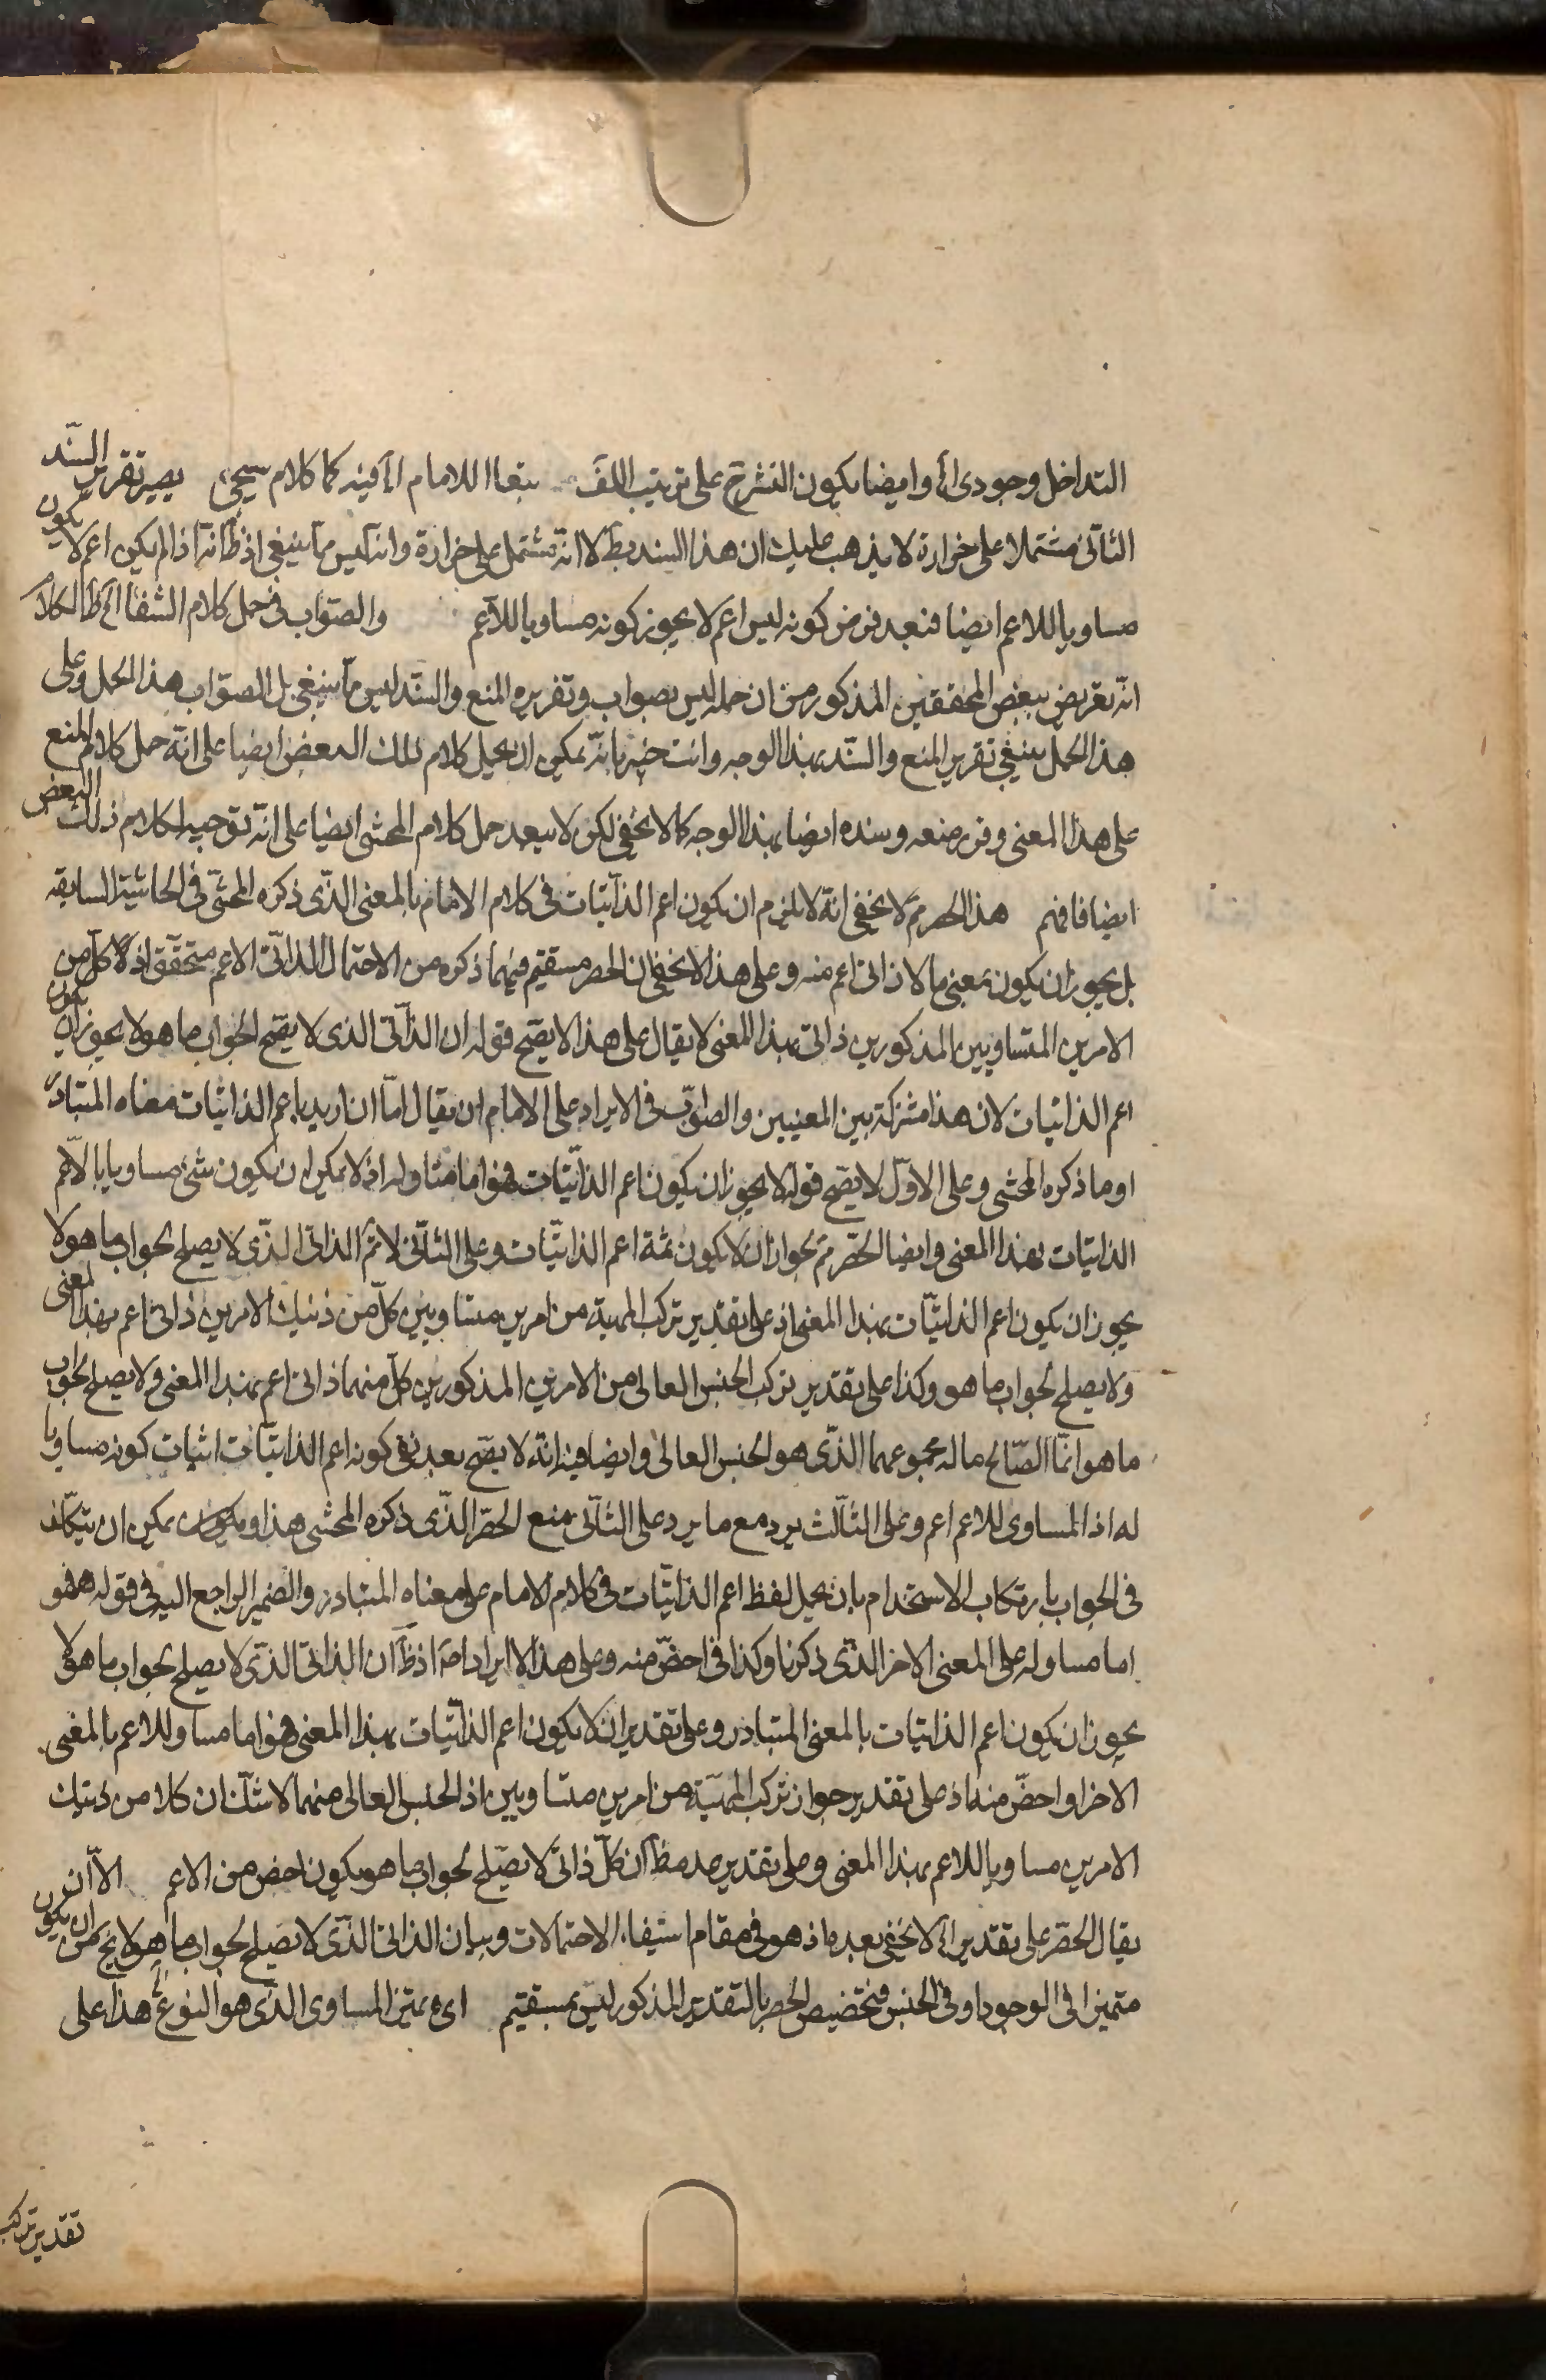 التداخل وجودى اه وايضا يكون النشر ح على ترتيب اللف تبعا للامام اه فيه كما كلام سيجئ يصير تقرير السند
الثانى مشتملا على خرازة لا يذهب عليك ان هذا السند بط لا انه مشتمل على خرازة وانه ليس مما ينبغى اذ ظ انه اذا لم يكن اعم لا يكون
مساويا للاعم ايضا فبعد فرض كونه ليس اعم لا يجوز كونه مساويا للاعم والصواب فى حمل كلام الشفا اه ظ الكلام
انه تعريض ببعض المحققين المذكور من ان حمله ليس بصواب وتقريره المنع والسند ليس مما ينبغى بل الصواب هذا الحمل وعلى
هذا الحمل ينبغى تقرير المنع والسند بهذا الوجه وانت خبير بانه يمكن ان يحمل كلام ذلك البعض ايضا على انه حمل كلام المنع
على هذا المعنى وقرر منعه وسنده ايضا بهذا الوجه كما لا يخفى لكن لا يبعد حمل كلام المحشى ايضا على انه توجيه لكلام ذلك البعض
ايضا فافهم هذا الحصر مم لا يخفى انه لا يلزم ان يكون اعم الذاتيات فى كلام الامام بالمعنى الذى ذكره المحشى فى الحاشية السابقه
بل يجوز ان يكون بمعنى ما لا ذاتى اعم منه وعلى هذا لا يخفى ان الحصر مستقيم فيهما ذكره من الاحتمال الذاتى الاعم متحقق اذ لا كل من
الامرين المتساويين المذكورين ذاتى بهذا المعنى لا يقال على هذا لا يصح قوله ان الذاتى الذى لا يصح لجواب ما هو لا يجوز ان يكون
اعم الذاتيات لان هذا مشتركة بين المعنيين والصواب فى الايراد على الامام ان يقال اما ان اريد باعم الذاتيات معناه المتبادر
او ما ذكره المحشى وعلى الاول لا يصح قوله لا يجوز ان يكون اعم الذاتيات فهو اما مساو له اذ لا يمكن ان يكون شئ مساويا بالاعم
الذاتيات بهذا المعنى وايضا الحصر مم بجواز ان لا يكون ثمة اعم الذاتيات وعلى الثانى لا ثم الذاتى الذى لا يصلح لجواب ما هو لا
يجوز ان يكون اعم الذاتيات بهذا المعنى اذ على تقدير تركب المهية من امرين متساويين كل من ذينك الامرين ذاتى اعم بهذا المعنى
ولا يصلح لجواب ما هو وكذا على تقدير تركب الجنس العالى من الامرين المذكورين كل منهما ذاتى اعم بهذا المعنى ولا يصلح لجواب
ما هو انما الصالح ما له مجموعهما الذى هو الجنس العالى وايضا فيه انه لا يصح بعد نفى كونه اعم الذاتيات اثبات كونه مساويا
له اذ المساوى للاعم اعم وعلى الثالث يرد مع ما يرد على الثانى منع الحصر الذى ذكره المحشى هذا ويمكن ان يتكلف
فى الجواب بارتكاب الاستخدام بان يحمل لفظ اعم الذاتيات فى كلام الامام على معناه المتبادر والضمير الراجع اليه فى قوله فهو
اما مساو له على المعنى الاخر الذى ذكرنا وكذا فى اخص منه وعلى هذا لا ايراد اصلا اذ ظ ان الذاتى الذى لا يصلح لجواب ما هو لا
يجوز ان يكون اعم الذاتيات بالمعنى المتبادر وعلى تقدير ان لا يكون اعم الذاتيات بهذا المعنى فهو اما مساو للاعم بالمعنى
الاخر او اخص منه اذ على تقدير جواز تركب المهية من امرين متساويين اذ الجنس العالى منهما لا شك ان كلا من ذينك
الامرين مساويا للاعم بهذا المعنى وعلى تقدير عدمه ظ ان كل ذاتى لا يصلح لجواب ما هو يكون اخص من الاعم الا ان
يقال الحصر على تقدير اه لا يخفى بعده اذ هو فى مقام استيفاء الاحتمالات وبيان الذاتى الذى لا يصلح لجواب ما هو لا يخ من ان يكون
متميزا فى الوجود او فى الجنس فتخصيص الحصر بالتقدير المذكور ليس بمستقيم اى يميز المساوى الذى هو النوع اه هذا على
تقدير تركب